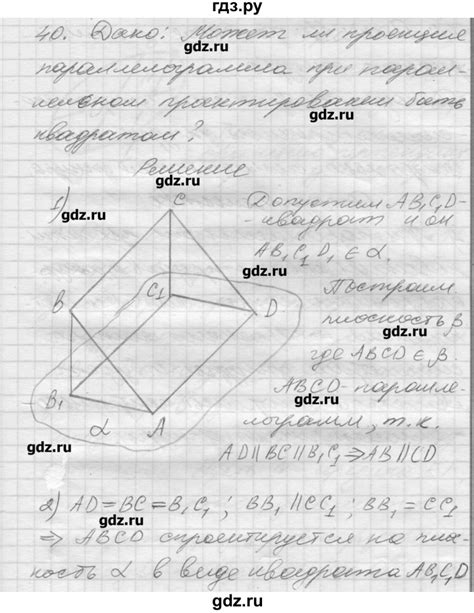 гдз.ру
40. Дано: Может ли проекция
gdz.ru
параллелограмма при парал-
gdz.ru
лельном проектировании быть
квадратом?
gdz.ru
Решение
1)
gdz.ru
C
Допустим AB₁C₁D-
gdz.ru
-квадрат и он
AB₁C₁D₁ ∈ α.
gdz.ru
C₁
Построим
B
D
gdz.ru
плоскость β
где ABCD ∈ β.
gdz.ru
B₁
ABCD-паралле-
α
A
gdz.ru
лограмм, т.к.
gdz.ru
AD∥BC∥B₁C₁⇒AB∥CD
gdz.ru
2) AD=BC=B₁C₁; BB₁∥CC₁; BB₁=CC₁
gdz.ru
⇒ ABCD спроектируется на плос-
кость α в виде квадрата AB₁C₁D
gdz.ru